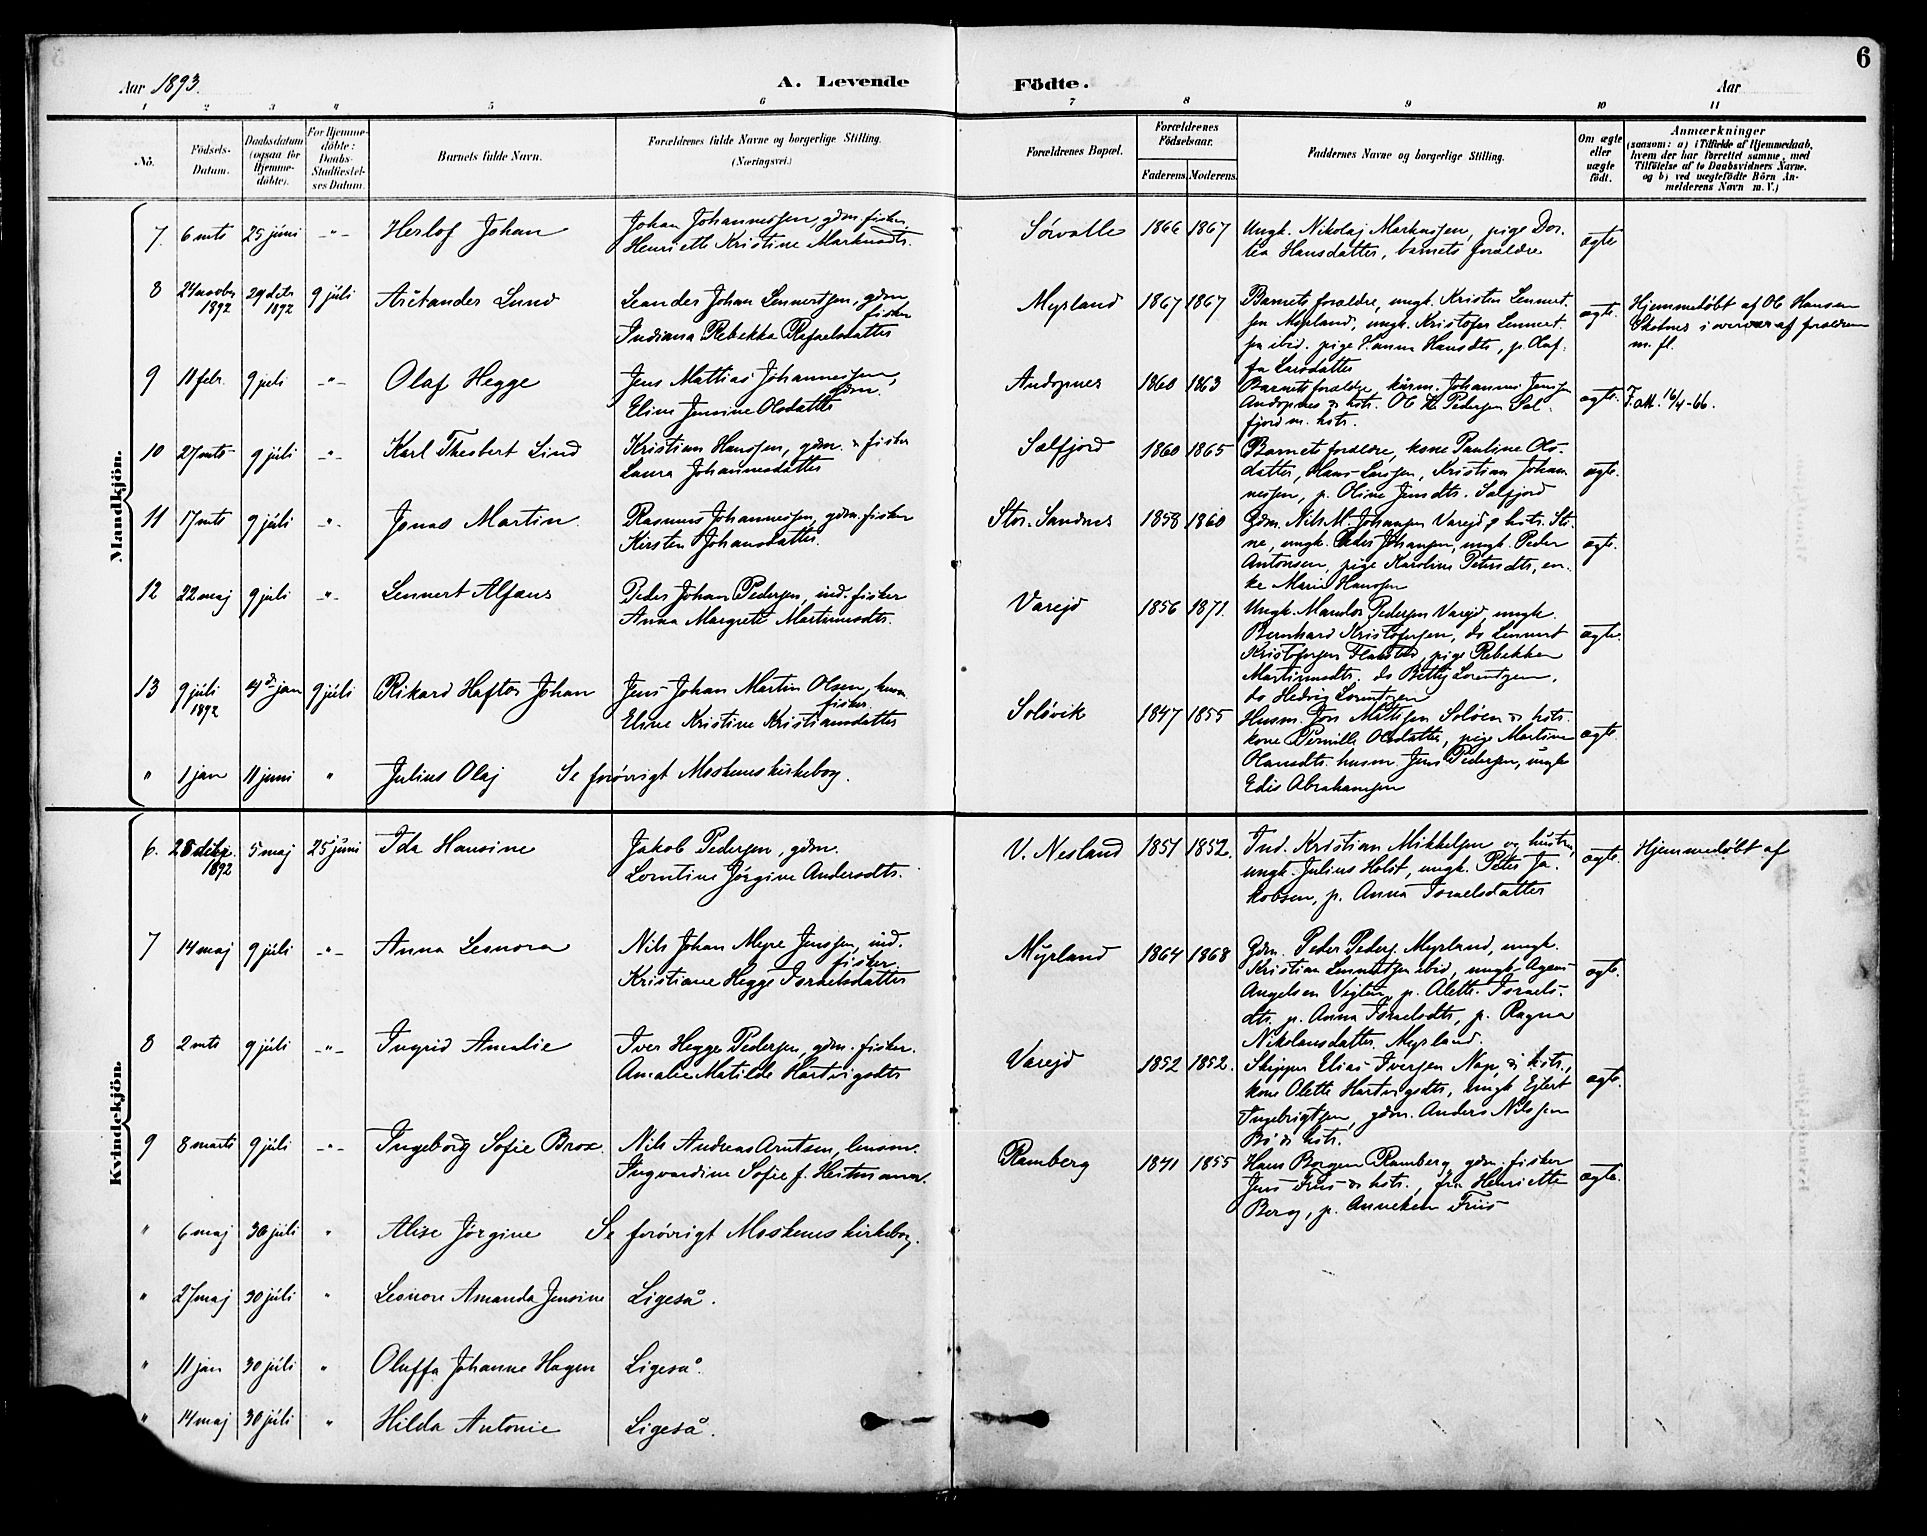 6
Aar 1893.
A. Levende Födte.
Aar
1 2 3 4 5 6 7 8 9 10 11
No.
Födsels-
Datum.
Daabsdatum
(ogsaa for
Hjemme-
döbte).
For Hjemme-
döbte:
Daabs-
Stadfæstel-
ses Datum.
Barnets fulde Navn.
Forældrenes fulde Navne og borgerlige Stilling.
(Næringsvei.)
Forældrenes Bopæl.
Forældrenes
Födselsaar.
Faderens. Moderens.
Faddernes Navne og borgerlige Stilling.
Om ægte
eller
uægte
födt.
Anmærkninger
(saasom: a) i Tilfælde af Hjemmedaab,
hvem der har forrettet samme, med
Tilföielse af to Daabsvidners Navne.
og b) ved uægtefödte Börn An-
melderens Navn m. V.)
Mandkjön.
7. 6 mts 25 juni -"- Herlof Johan
Johan Johannessen, gdm. fisker
Henriette Kristine Markusdtr.
Sørvalle 1866 1867
Ungk. Nikolaj Markussen, pige Dor-
tea Hansdatter, barnets forældre
ægte
8 24 novbr 1892 29 dcbr 1892 9 júli Aristander Lund
Leander Johan Lennertsen, gdm.
fisker
Indiana Rebekka Rafaelsdatter
Myrland 1867 1867
Barnets forældre, ungk. Kristen Lennert-
sen Myrland, ungk. Kristofer Lennert-
sen ibid. pige Hanna Hansdtr, p. Olaf-
fa Larsdatter
ægte.
Hjemmedøbt af Ol. Hansen
Skotnes i overvær af forældrene
m. fl.
9 11 febr. 9 juli -"- Olaf Hegge
Jens Mathias Johannessen,
gdm.
Eline Jensine Olsdatter
Andopnes 1860 1863
Barnets forældre, kårm. Johannes Jenssen
Andopnes & hstr. Ol. K. Pedersen Sel-
fjord m. hstr.
ægte. F. att. 16/4-66.
10 27 mts 9 júli -"- Karl Thesbert Lind
Kristian Hanssen, gdm. & fisker
Laura Johannesdatter
Selfjord 1860 1865
Barnets forældre, kone Pauline Ols-
datter, Hans Larssen, Kristian Johan-
nessen, p. Oline Jensdtr. Selfjord
ægte.
11 17 mts 9 júli -"- Jonas Martin
Rasmus Johannessen, gdm. fisker
Kirsten Johansdatter.
Stor-Sandnes 1858 1860
Gdm. Nils M. Johansen Varejd & hstr. Sti-
ne, ungk. Peder Johansen, ungk. Peder
Antonsen, pige Karoline Petersdtr, en-
ke Marie Hanssen
ægte.
12 22 maj 9 júli -"- Lennert Alfæus
Peder Johan Pedersen, ind. fisker
Anna Margrete Martinusdtr.
Varejd 1856 1871.
Ungk. Pedersen Varejd, ungk.
Bernhard Kristofersen, do Lennert
Kristofersen Flakstad, pige Rebekka
Martinusdtr. do Betty Lorentzen,
do Hedvig Lorentzen
ægte.
13 9 júli 1892 4 jan 9 júli Rikard Haftor Johan
Jens Johan Martin Olsen, husm.
fisker
Eline Kristine Kristiansdatter
Soløvik 1847 1855
Husm. Jon Mattisen Soløen & hstr.
kone Pernille Olsdatter, pige Martine
Olausdtr. husm. Jens Pedersen, ungk
Edis Abrahamsen
ægte.
" 1 jan 11 juni " Julius Olaj Se forøvrigt Moskenes kirkebog.
Kvindekjön.
6. 28 1892 5 maj 25 juni Ida Hansine
Jakob Pedersen, gdm.
Lorntine Jørgine Andersdtr.
V. Nesland 1851 1852.
Ind. Kristian Mikkelsen og hustru,
ungk. Julius Holst, ungk. Peter Ja-
kobsen, p. Anna Israelsdatter
ægte. Hjemmedøbt af
7 14 maj 9 júli -"- Anna Leonora
Nils Johan Myre Jenssen, ind.
fisker
Kristiane Hegge Israelsdatter
Myrland 1864 1868
Gdm. Peder Peders. Myrland, ungk.
Kristian Lennertsen ibid, ungk.
Angelsen p. Alette Israels-
dtr, p. Anna Israelsdtr, p. Ragna
Nikolausdatter, Myrland.
ægte.
8 2 mts 9 júli -"- Ingrid Amalie
Iver Hegge Pedersen, gdm. fisker.
Amalie Matilde Hartvigsdtr
Varejd 1852 1852.
Skipper Elias Iversen Nap, & hstr.,
kone Olette Hartvigsdtr, ungk Ejlert
Ingebrigtsen, gdm. Anders Nilssen
Bø & hstr.
ægte.
9 8 marts 9 júli -"- Ingeborg Sofie Brox.
Nils Andreas Arntsen, lensm.
Ingvardine Sofie f. Hartmann.
Ramberg 1841 1855
Hans Borgen Ramberg, gdm. fisker
Jens Friis & hstr., frk Henriette
Berg, p. Anneken Friis
ægte.
" 6 maj 30 júli " Alise Jørgine Se forøvrigt Moskenes kirkebog.
" 27 maj 30 júli " Leonore Amanda Jensine Ligeså.
" 11 jan 30 júli " Oluffa Johanne Hagen Ligeså.
" 14 maj 30 júli " Hilda Antonie Ligeså.